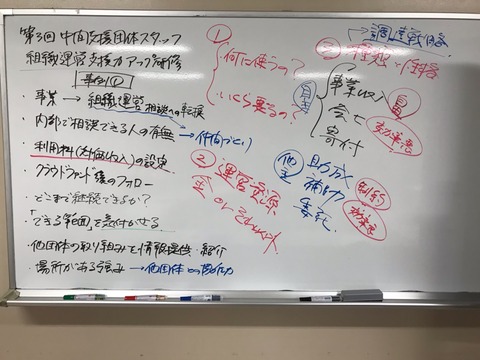 第3回 中間支援団体スタッフ
組織運営支援力アップ研修
事例①
・事業 → 組織運営 相談への転換
・内部で相談できる人の有無 →仲間づくり
・利用料(対価収入)の設定
・クラウドファンド後のフォロー
・どこまで継続できるか?
・「できる範囲」を気付かせる
・他団体の取り組みを情報提供・紹介
・場所がある強み →他団体との協力
1
何に使うの?
いくら要るの?
2 運営資源
金 or それ以外
→調達戦略
3 種類×財源
自主
事業収入
会費
寄付
効率悪
他
助成
補助
委託
制約
効率